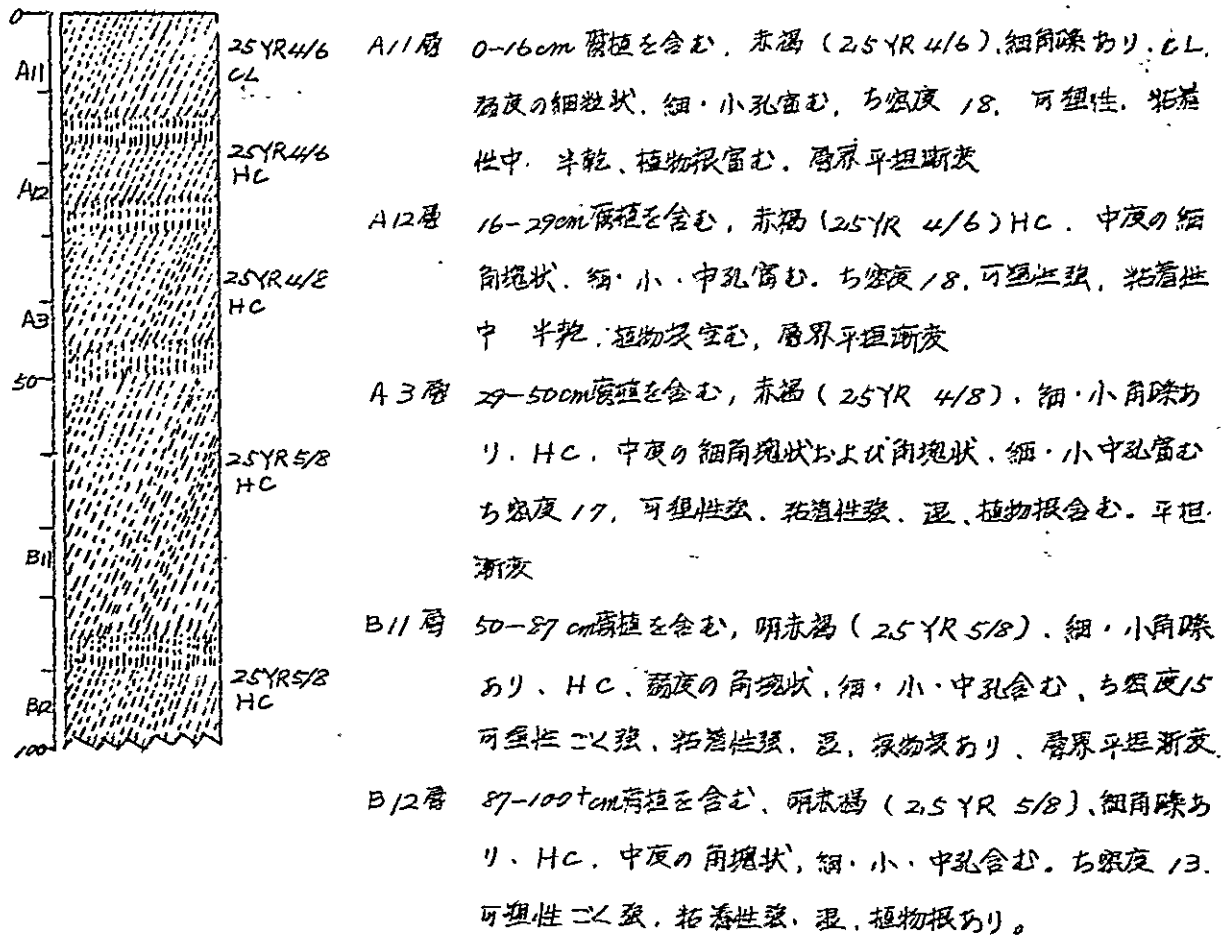 0
A11
25YR4/6
CL
A12
25YR4/6
HC
A3
25YR4/8
HC
50
25YR5/8
HC
B11
25YR5/8
HC
B12
100
A11層 0-16cm 腐植を含む, 赤褐 (2.5YR 4/6), 細角礫あり. CL.
弱度の細粒状, 細・小孔富む, ち密度 18, 可塑性, 粘着
性中. 半乾、植物根富む. 層界平坦漸変
A12層 16-29cm 腐植を含む, 赤褐 (2.5YR 4/6) HC. 中度の細
角塊状. 細・小・中孔富む. ち密度 18. 可塑性強, 粘着性
中 半乾. 植物根富む, 層界平坦漸変
A3層 29-50cm 腐植を含む, 赤褐 (2.5YR 4/8). 細・小角礫あ
り. HC. 中度の細角塊状および角塊状. 細・小中孔富む
ち密度 17, 可塑性強. 粘着性強. 湿、植物根含む. 平坦
漸変
B11層 50-87 cm 腐植を含む, 明赤褐 (2.5YR 5/8). 細・小角礫
あり、HC、弱度の角塊状, 細・小・中孔含む、ち密度15
可塑性ごく強. 粘着性強. 湿, 植物根あり、層界平坦漸変.
B12層 87-100+cm 腐植を含む、明赤褐 (2.5YR 5/8)、細角礫あ
り、HC. 中度の角塊状, 細・小・中孔含む。ち密度 13.
可塑性ごく強. 粘着性強. 湿, 植物根あり。